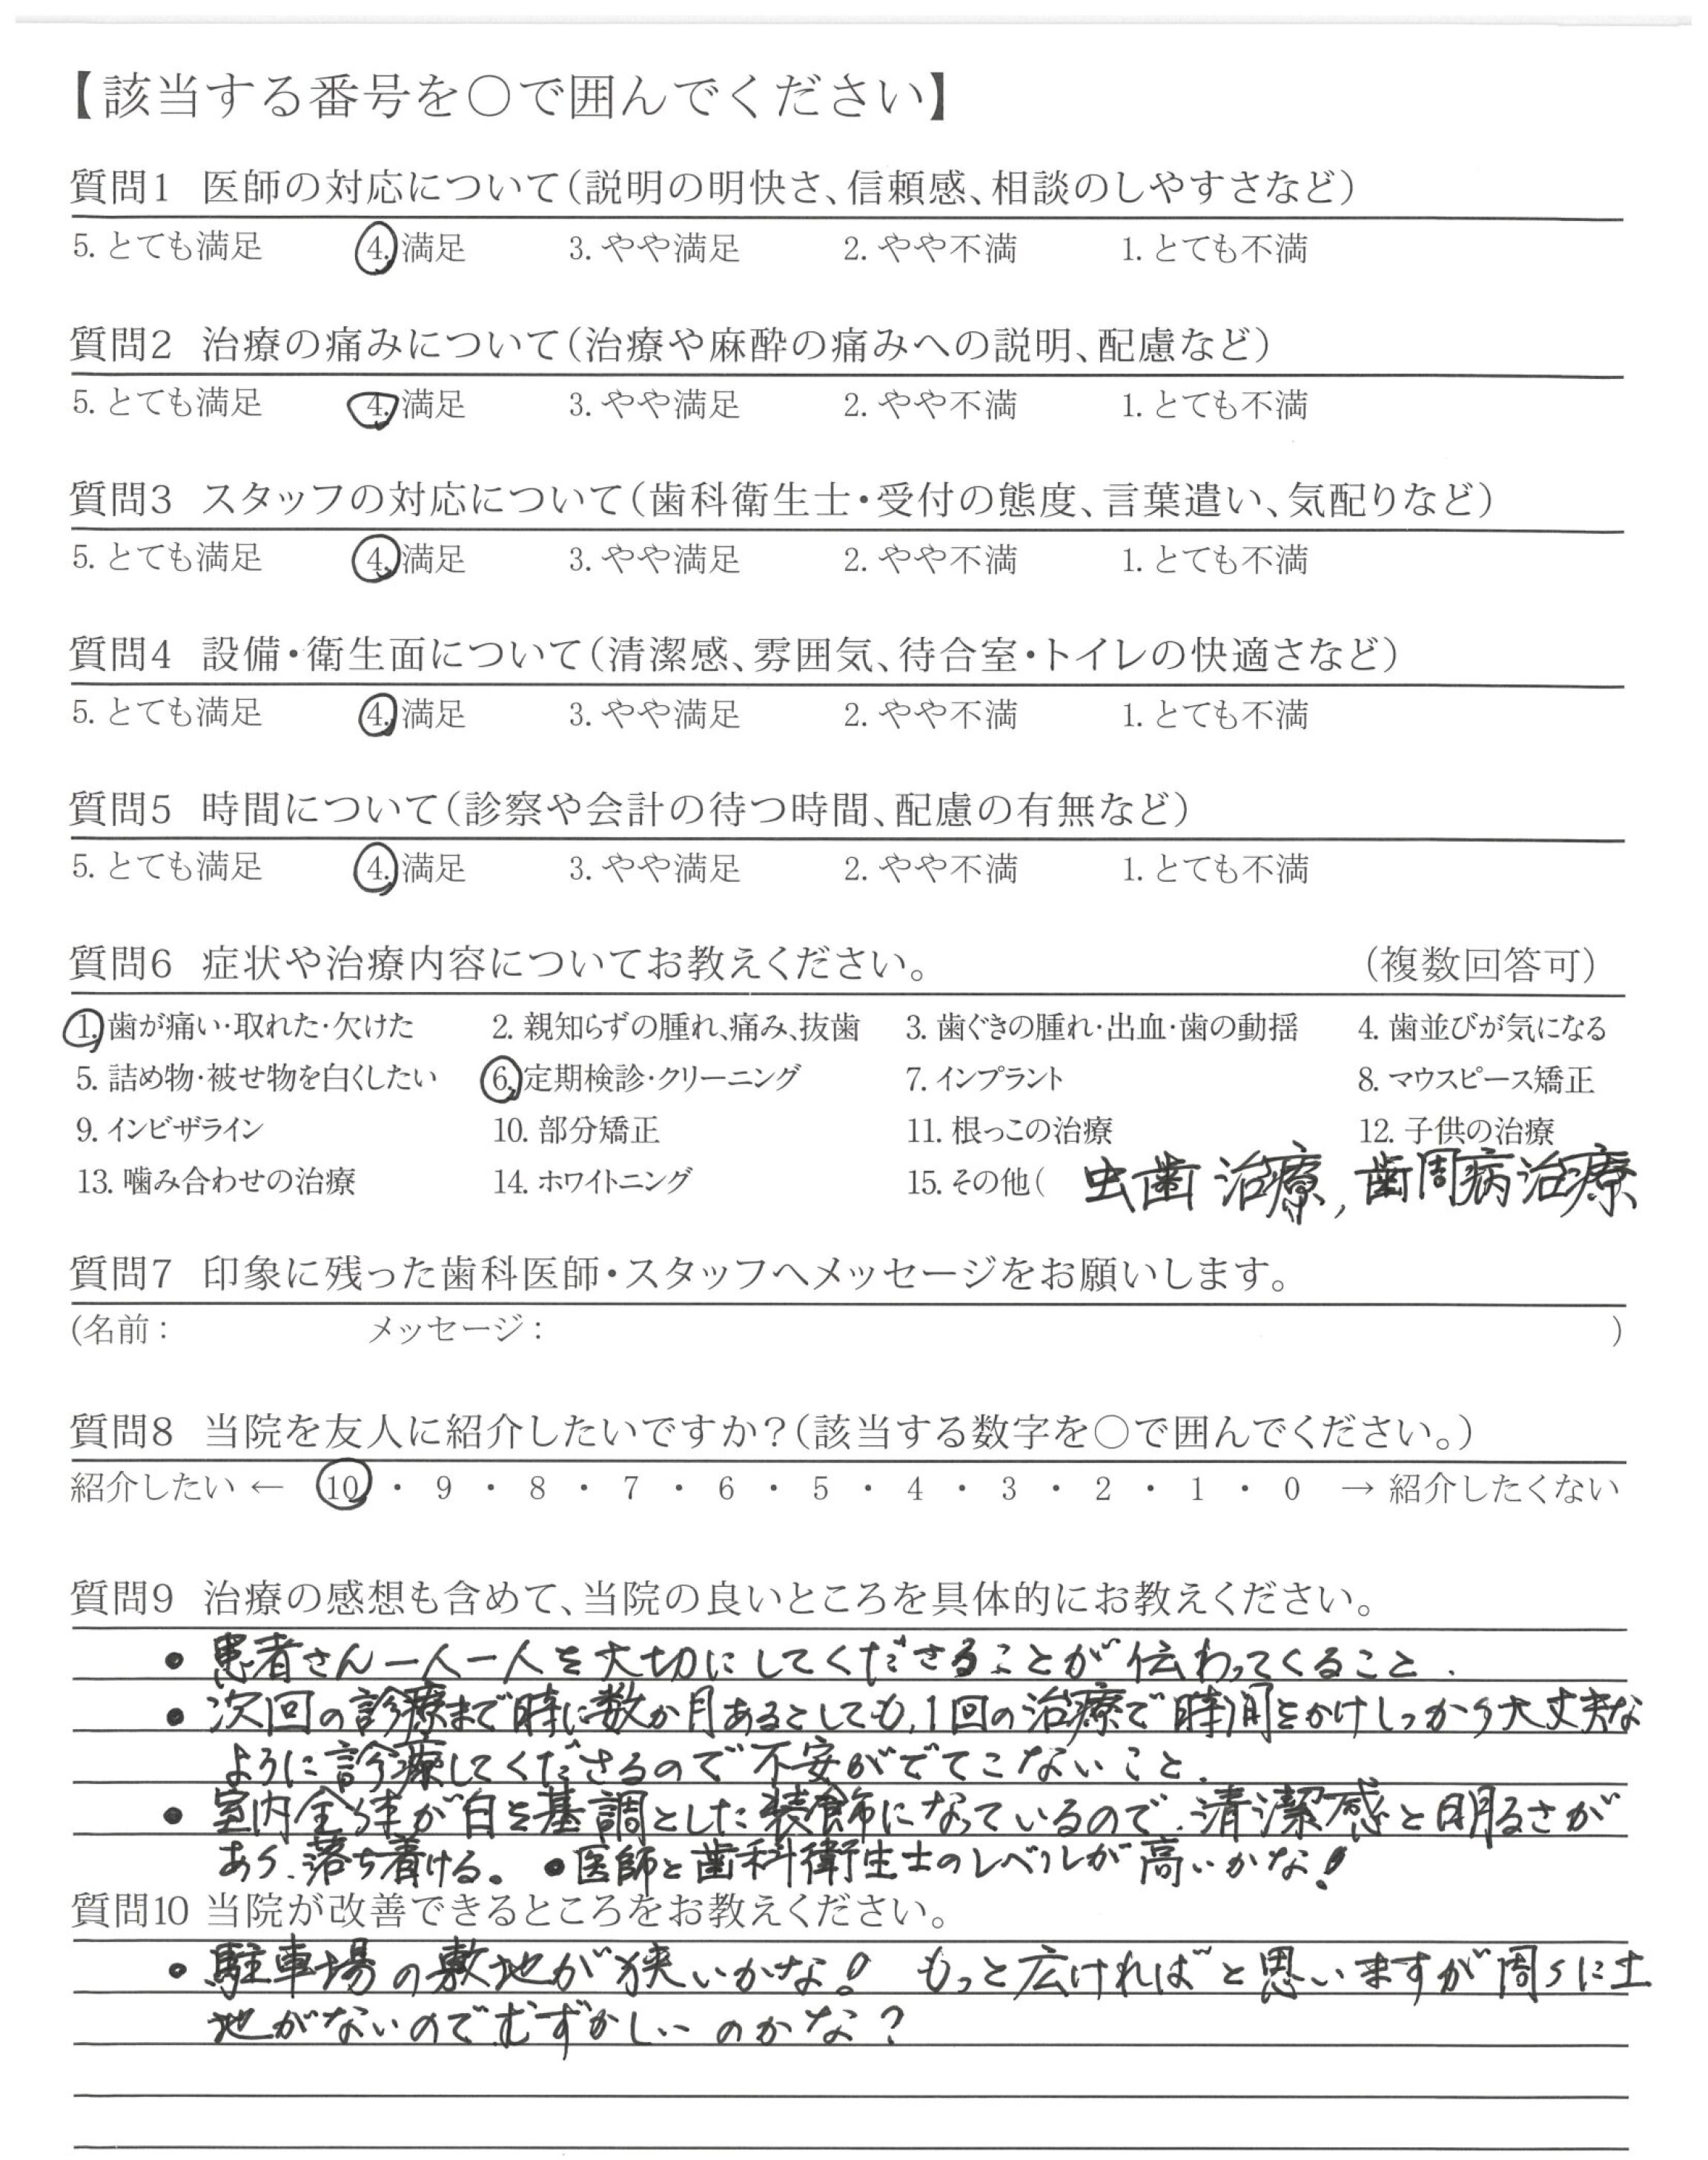 【該当する番号を○で囲んでください】
質問1 医師の対応について(説明の明快さ、信頼感、相談のしやすさなど)
5. とても満足 4. 満足 3. やや満足 2. やや不満 1. とても不満
質問2 治療の痛みについて(治療や麻酔の痛みへの説明、配慮など)
5. とても満足 4. 満足 3. やや満足 2. やや不満 1. とても不満
質問3 スタッフの対応について(歯科衛生士・受付の態度、言葉遣い、気配りなど)
5. とても満足 4. 満足 3. やや満足 2. やや不満 1. とても不満
質問4 設備・衛生面について(清潔感、雰囲気、待合室・トイレの快適さなど)
5. とても満足 4. 満足 3. やや満足 2. やや不満 1. とても不満
質問5 時間について(診察や会計の待つ時間、配慮の有無など)
5. とても満足 4. 満足 3. やや満足 2. やや不満 1. とても不満
質問6 症状や治療内容についてお教えください。 (複数回答可)
1. 歯が痛い・取れた・欠けた 2. 親知らずの腫れ、痛み、抜歯 3. 歯ぐきの腫れ・出血・歯の動揺 4. 歯並びが気になる
5. 詰め物・被せ物を白くしたい 6. 定期検診・クリーニング 7. インプラント 8. マウスピース矯正
9. インビザライン 10. 部分矯正 11. 根っこの治療 12. 子供の治療
13. 噛み合わせの治療 14. ホワイトニング 15. その他( 虫歯治療, 歯周病治療
質問7 印象に残った歯科医師・スタッフへメッセージをお願いします。
(名前: メッセージ: )
質問8 当院を友人に紹介したいですか?(該当する数字を○で囲んでください。)
紹介したい ← 10 ・ 9 ・ 8 ・ 7 ・ 6 ・ 5 ・ 4 ・ 3 ・ 2 ・ 1 ・ 0 → 紹介したくない
質問9 治療の感想も含めて、当院の良いところを具体的にお教えください。
• 患者さん一人一人を大切にしてくださることが伝わってくること.
• 次回の診療まで時に数か月あるとしても,1回の治療で時間をかけしっかり大丈夫な
ように診療してくださるので不安がでてこないこと.
• 室内全体が白を基調とした装飾になっているので、清潔感と明るさが
あり、落ち着ける。 •医師と歯科衛生士のレベルが高いかな!
質問10 当院が改善できるところをお教えください。
• 駐車場の敷地が狭いかな! もっと広ければと思いますが周りに土
地がないのでむずかしいのかな?